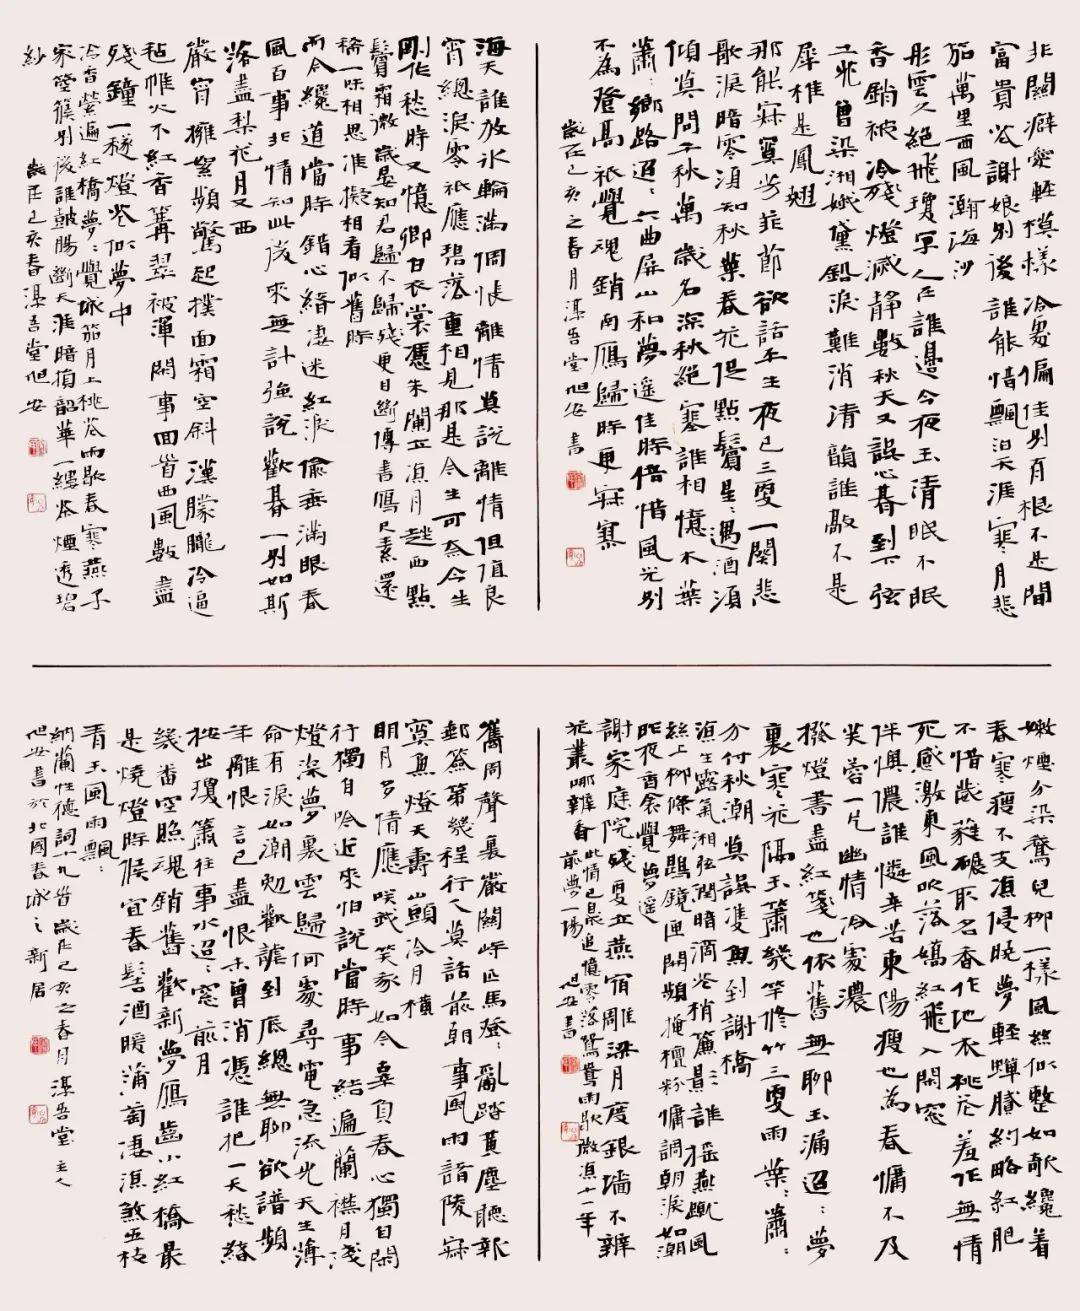 非關癖愛輕模樣冷處偏佳別有根不是間
富貴花謝娘別後誰能惜飄泊天涯寒月悲
笳萬里西風瀚海沙
彤雲久絕飛瓊字人在誰邊今夜玉清眠不眠
香銷被冷殘燈滅靜數秋天又誤心期到下弦
土花曾染湘娥黛鉛淚難消清韻誰敲不是
犀椎是鳳翹
那能寂寞芳菲節欲話平生夜已三更一闋悲
歌淚暗零須知秋葉春花促點鬢星星遇酒須
傾莫問千秋萬歲名深秋絕塞誰相憶木葉
蕭蕭鄉路迢迢六曲屏山和夢遙佳時倍惜風光別
不為登高祇覺魂銷南雁歸時更寂寥
歲在己亥之春月湛吾堂旭安書
海天誰放冰輪滿惆悵離情莫說離情但值良
宵總淚零祇應碧落重相見那是今生可奈今生
剛作愁時又憶卿白衣裳憑朱闌立涼月趖西點
鬢霜微歲晏知君歸不歸殘更目斷傳書雁尺素還
稀一味相思准擬相看似舊時
而今纔道當時錯心緒淒迷紅淚偷垂滿眼春
風百事非情知此後來無計強說歡期一別如斯
落盡梨花月又西
嚴宵擁絮頻驚起撲面霜空斜漢朦朧冷逼
氈帷火不紅香篝翠被渾閑事回首西風數盡
殘鐘一穟燈花似夢中
冷香縈遍紅橋夢夢覺城笳月上桃花雨歇春寒燕子
家箜篌別後誰鼓腸斷天涯暗損韶華一縷茶煙透碧
紗 歲在己亥春湛吾堂旭安
嫩煙分染鵝兒柳一樣風絲似整如欹纔着
春寒瘦不支涼侵曉夢輕蟬膩約略紅肥
不惜葳蕤碾取名香作地衣桃花羞作無情
死感激東風吹落嬌紅飛入閑窗
伴懊儂誰憐辛苦東陽瘦也為春慵不及
芙蓉一片幽情冷處濃
撥燈書盡紅箋也依舊無聊玉漏迢迢夢
裏寒花隔玉簫幾竿修竹三更雨葉葉蕭蕭
分付秋潮莫誤雙魚到謝橋
涼生露氣湘弦潤暗滴花梢簾影誰搖燕蹴風
絲上柳條舞鵾鏡匣開頻掩檀粉慵調朝淚如潮
昨夜香衾覺夢遙
謝家庭院殘更立燕宿雕梁月度銀牆不辨
花叢哪辨香 此情已是追憶零落鴛鴦雨歇微涼十一年
前夢一場 旭安書
巂周聲裏嚴關峙匹馬登登亂踏黃塵聽報
郵籤第幾程行人莫話前朝事風雨諸陵寂
寞魚燈天壽山頭冷月橫
明月多情應咲我笑我如今辜負春心獨自閑
行獨自吟近來怕說當時事結遍蘭襟月淺
燈深夢裏雲歸何處尋電急流光天生薄
命有淚如潮勉歡謔到底總無聊欲譜頻
年離恨言已盡恨未曾消憑誰把一天愁緒
按出瓊簫往事水迢迢窗前月
幾番空照魂銷舊歡新夢雁齒小紅橋最
是燒燈時候宜春髻酒暖蒲萄淒涼煞五枝
青玉風雨飄飄
納蘭性德詞十九首歲在己亥之春月湛吾堂主人
旭安書於北國春城之新居